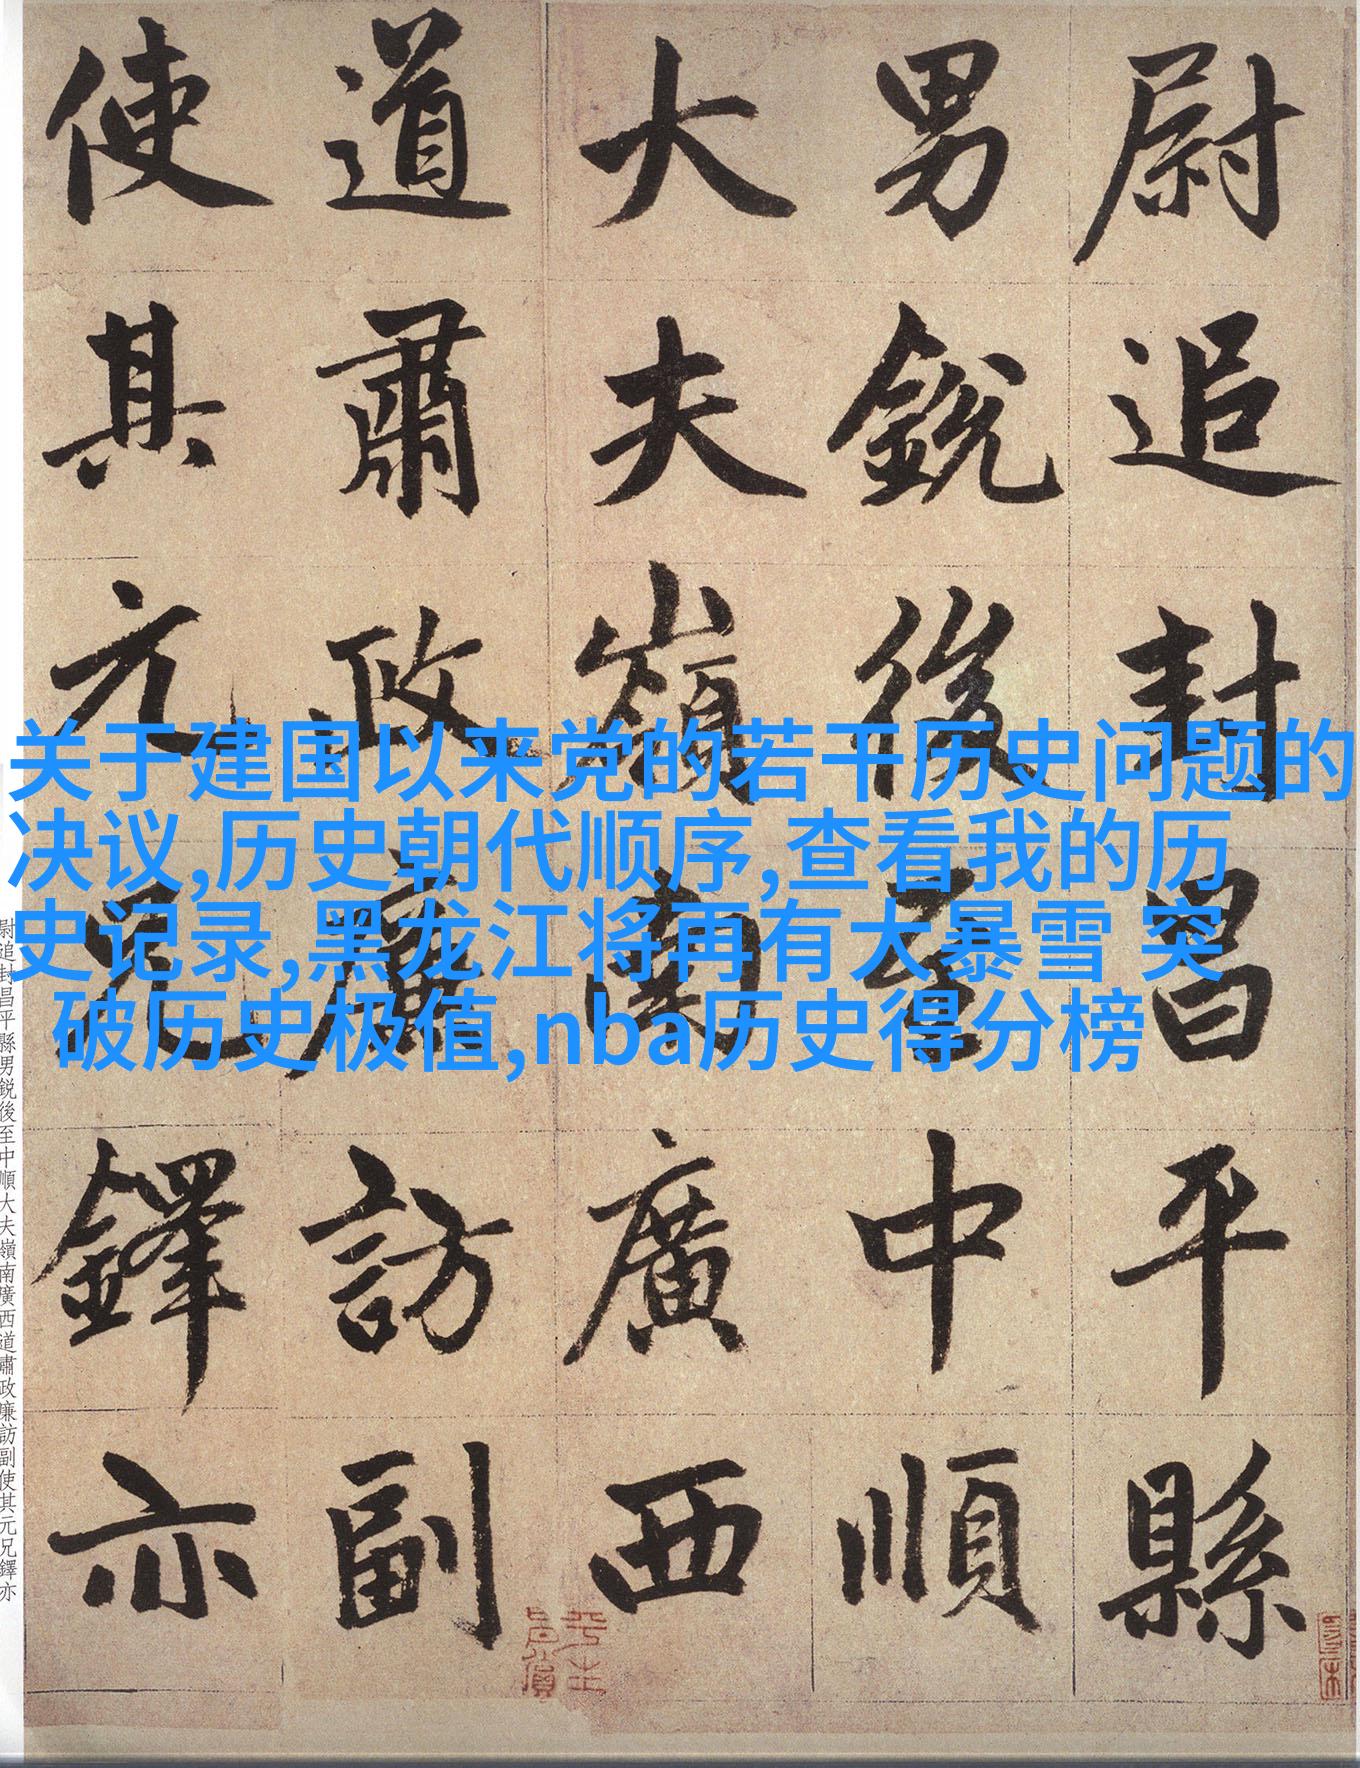 尉追封昌平縣
男銳後至中順
大夫嶺南廣西
道肅政廉訪副
使其元兄鐸亦
关于建国以来党的若干历史问题的
决议,历史朝代顺序,查看我的历
史记录,黑龙江将再有大暴雪 突
破历史极值,nba历史得分榜
尉追封昌平縣男銳後至中順大夫嶺南廣西道肅政廉訪副使其元兄鐸亦